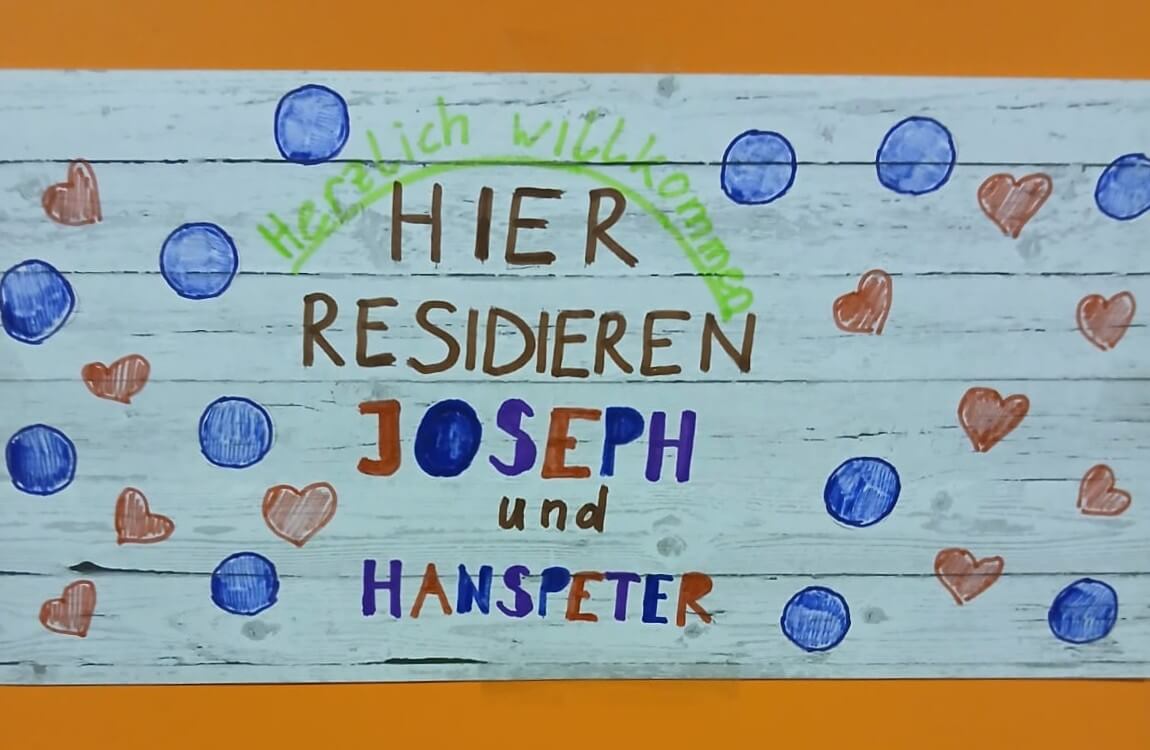 Herzlich willkommen
HIER
RESIDIEREN
JOSEPH
und
HANSPETER